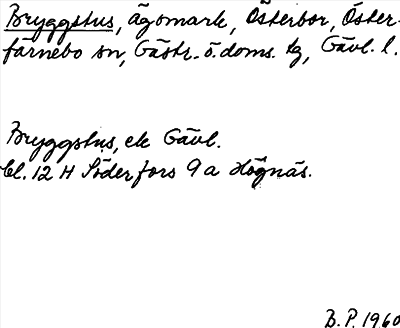 Bryggstus, ägomark, Österbor, Öster-
färnebo sn, Gästr. ö. doms. tg, Gävl. l.
Bryggstus, ek Gävl.
bl. 12 H Söderfors 9 a Högnäs.
B. P. 1960